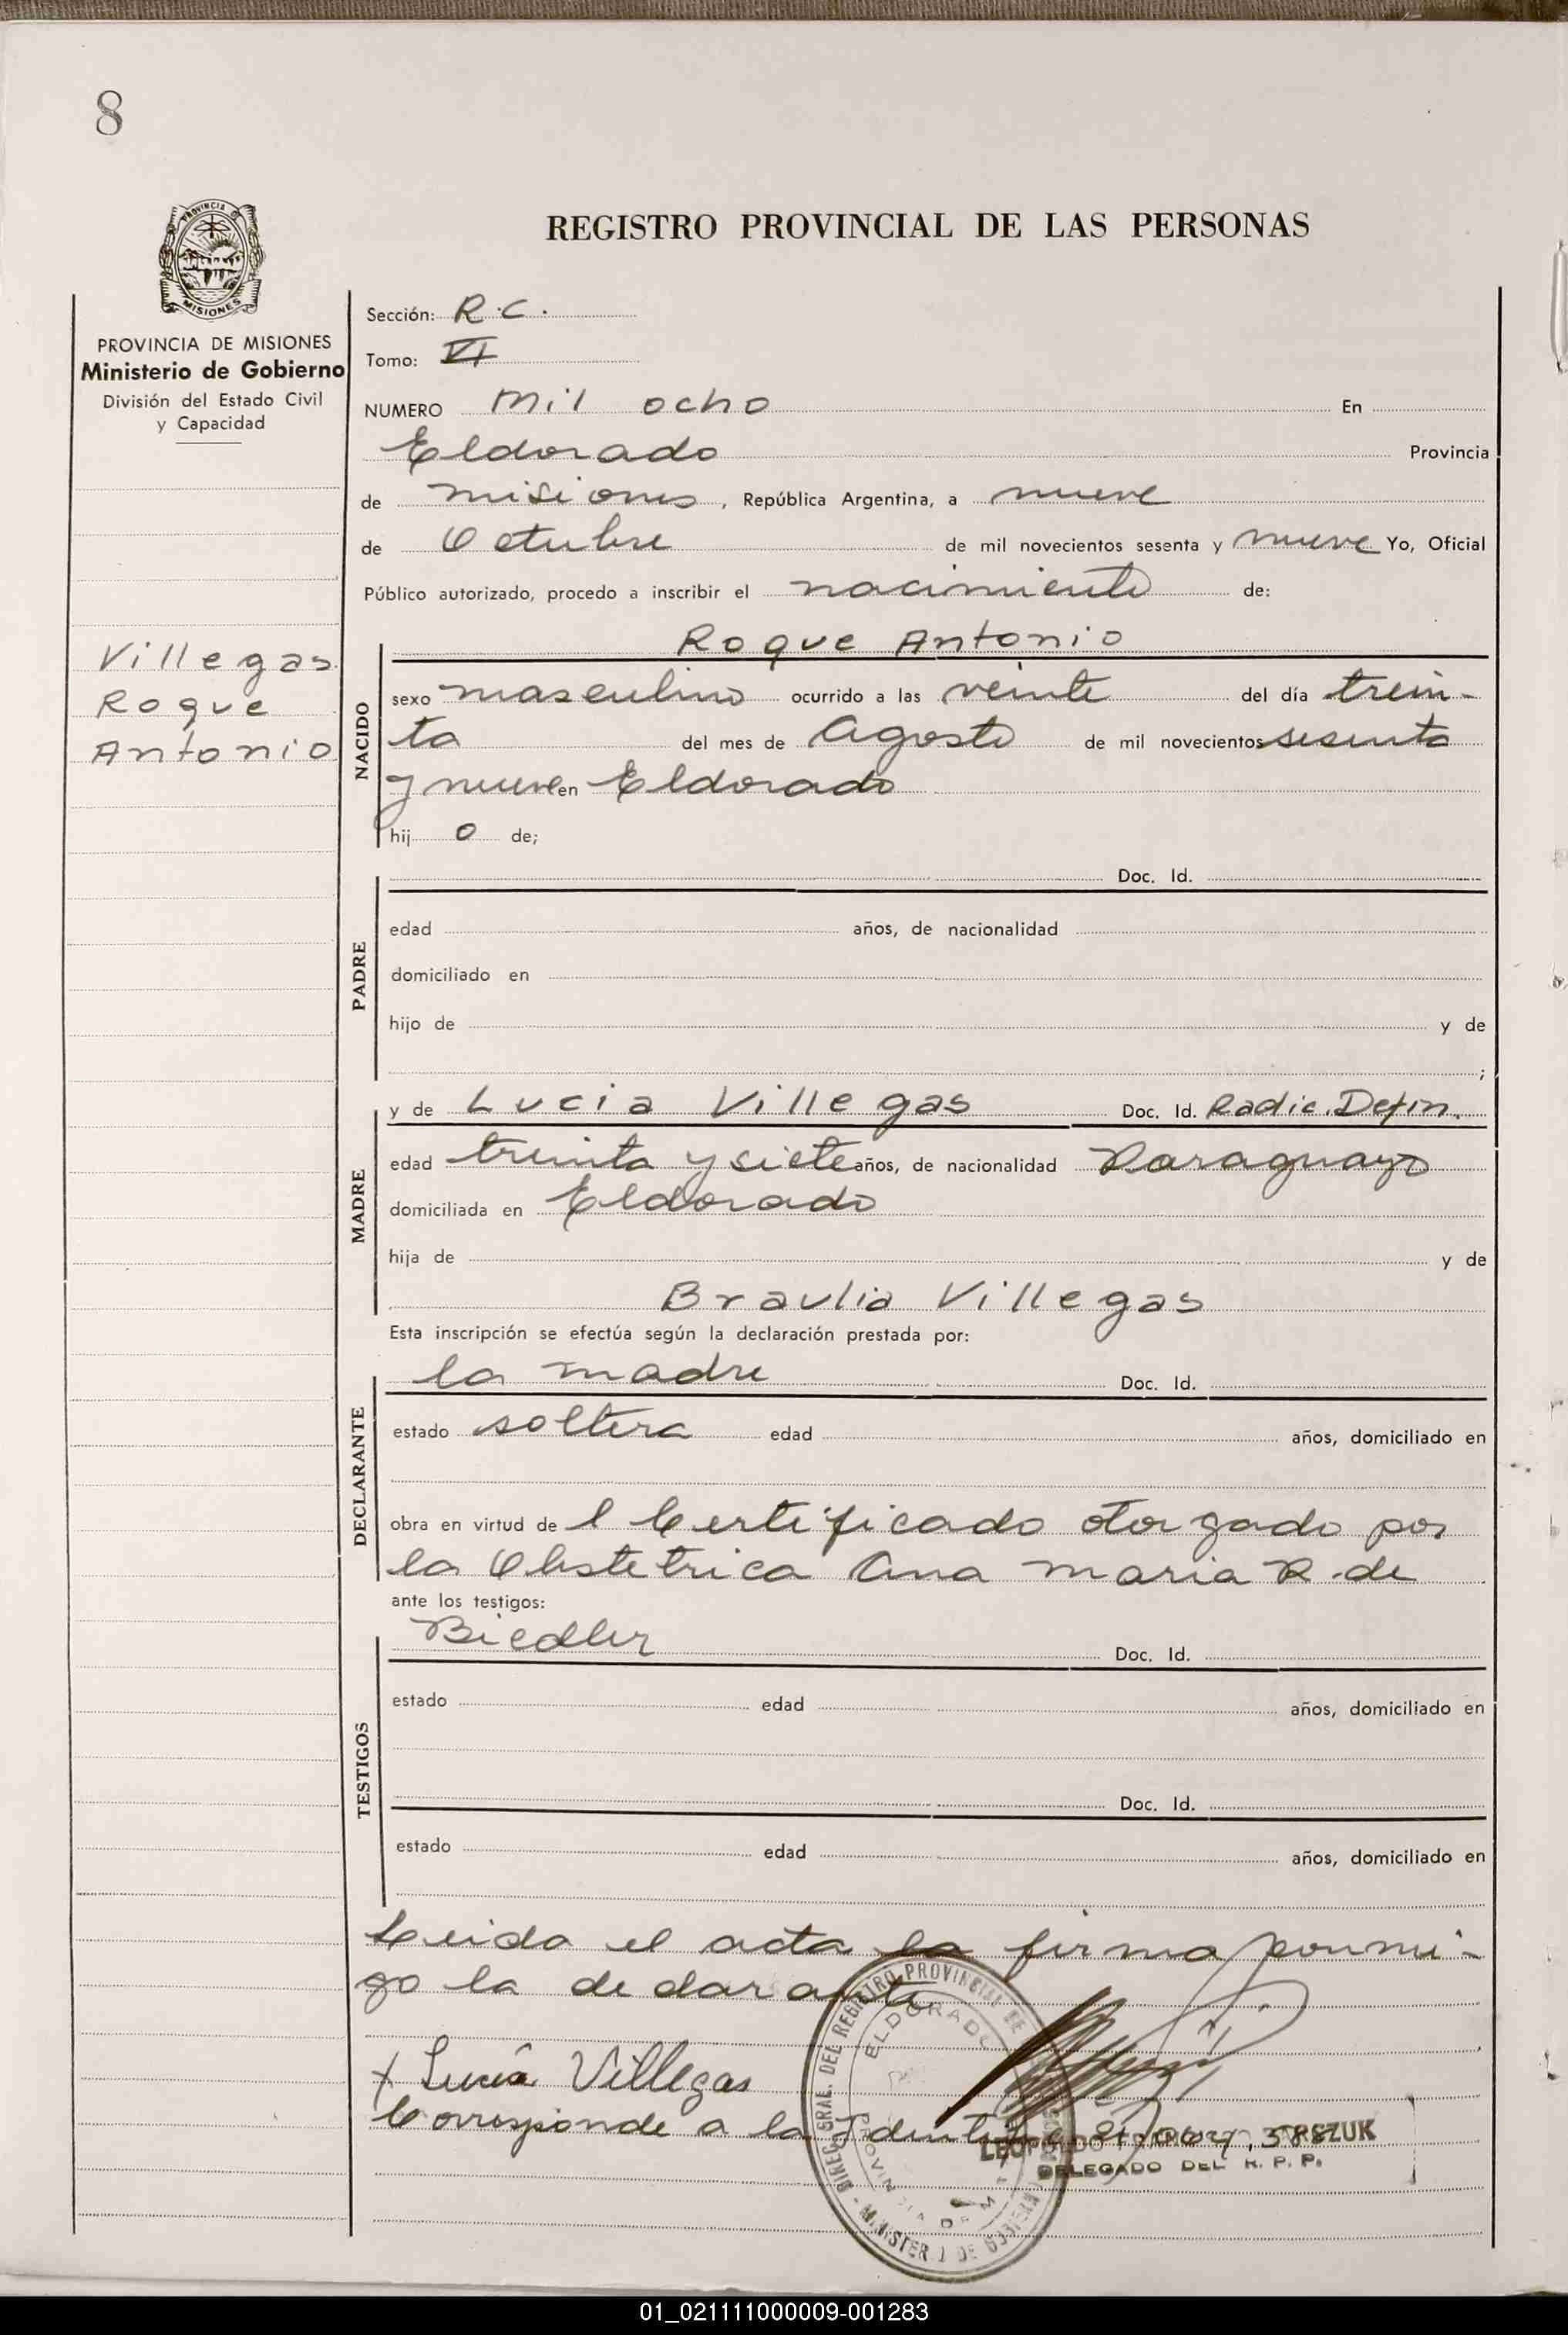 8
PROVINCIA DE
MISIONES
PROVINCIA DE MISIONES
Ministerio de Gobierno
División del Estado Civil
y Capacidad
Villegas
Roque
Antonio
REGISTRO PROVINCIAL DE LAS PERSONAS
Sección: R.C.
Tomo: VI
NUMERO mil ocho En
Eldorado Provincia
de misiones, República Argentina, a nueve
de Octubre de mil novecientos sesenta y nueve Yo, Oficial
Público autorizado, procedo a inscribir el nacimiento de:
Roque Antonio
NACIDO
sexo masculino ocurrido a las veinte del día trein-
ta del mes de Agosto de mil novecientos sesenta
y nueve en Eldorado
hij o de;
Doc. Id.
PADRE
edad años, de nacionalidad
domiciliado en
hijo de y de
;
y de Lucia Villegas Doc. Id. Radic. Defin.
MADRE
edad treinta y siete años, de nacionalidad Paraguayo
domiciliada en Eldorado
hija de y de
Braulia Villegas
Esta inscripción se efectúa según la declaración prestada por:
la madre Doc. Id.
DECLARANTE
estado soltera edad años, domiciliado en
obra en virtud de l Certificado otorgado por
la Obstetrica Ana maria R. de
ante los testigos:
Biedler Doc. Id.
TESTIGOS
estado edad años, domiciliado en
Doc. Id.
estado edad años, domiciliado en
Leida el acta la firma conmi-
go la declarante
DIREC. GRAL. DEL REGISTRO PROVINCIAL DE
ELDORADO
MINISTERIO DE GOBIERNO
x Lucía Villegas
Corresponde a la
LEOPOLDO
DELEGADO DEL R. P. P.
01_021111000009-001283